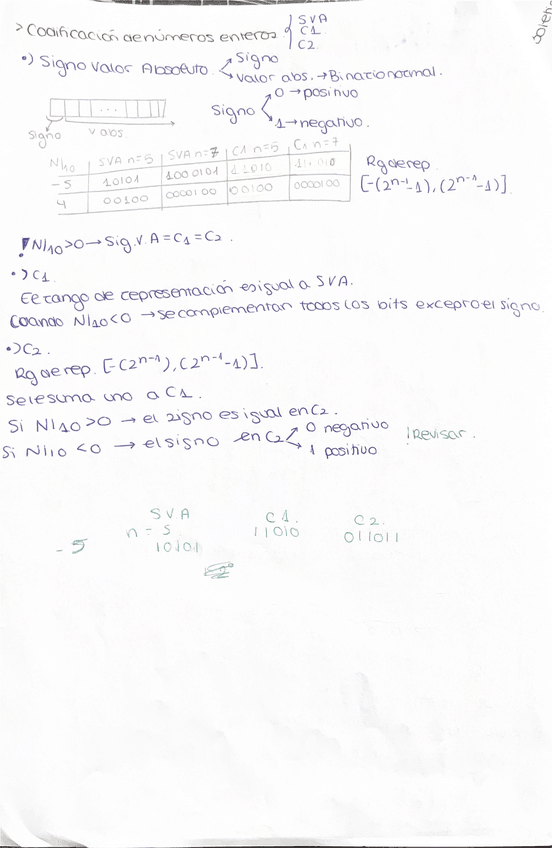 > Codificación de números enteros { SVA
C1
C2.
•) Signo Valor Absoluto. Signo
Valor abs. → Binario normal.
Signo 0 → positivo
1 → negativo.
...
Signo v abs
N)10 SVA n=5 SVA n=7 C1 n=5 C1 n=7
-5 10101 1000101 11010
4 00100 0000100 00100 0000100
Rg de rep.
[-(2^n-1-1), (2^n-1-1)]
! N)10>0 → Sig.V.A = C1 = C2.
•) C1.
El rango de representación es igual a SVA.
Cuando N)10<0 → se complementan todos los bits excepto el signo
•) C2.
Rg de rep. [-(2^n-1), (2^n-1-1)].
Se le suma uno a C1.
Si N)10 >0 → el signo es igual en C2.
Si N)10 <0 → el signo en C2 0 negativo
1 positivo
¡Revisar.
SVA C1. C2.
n = 5
-5 10101 11010 011011